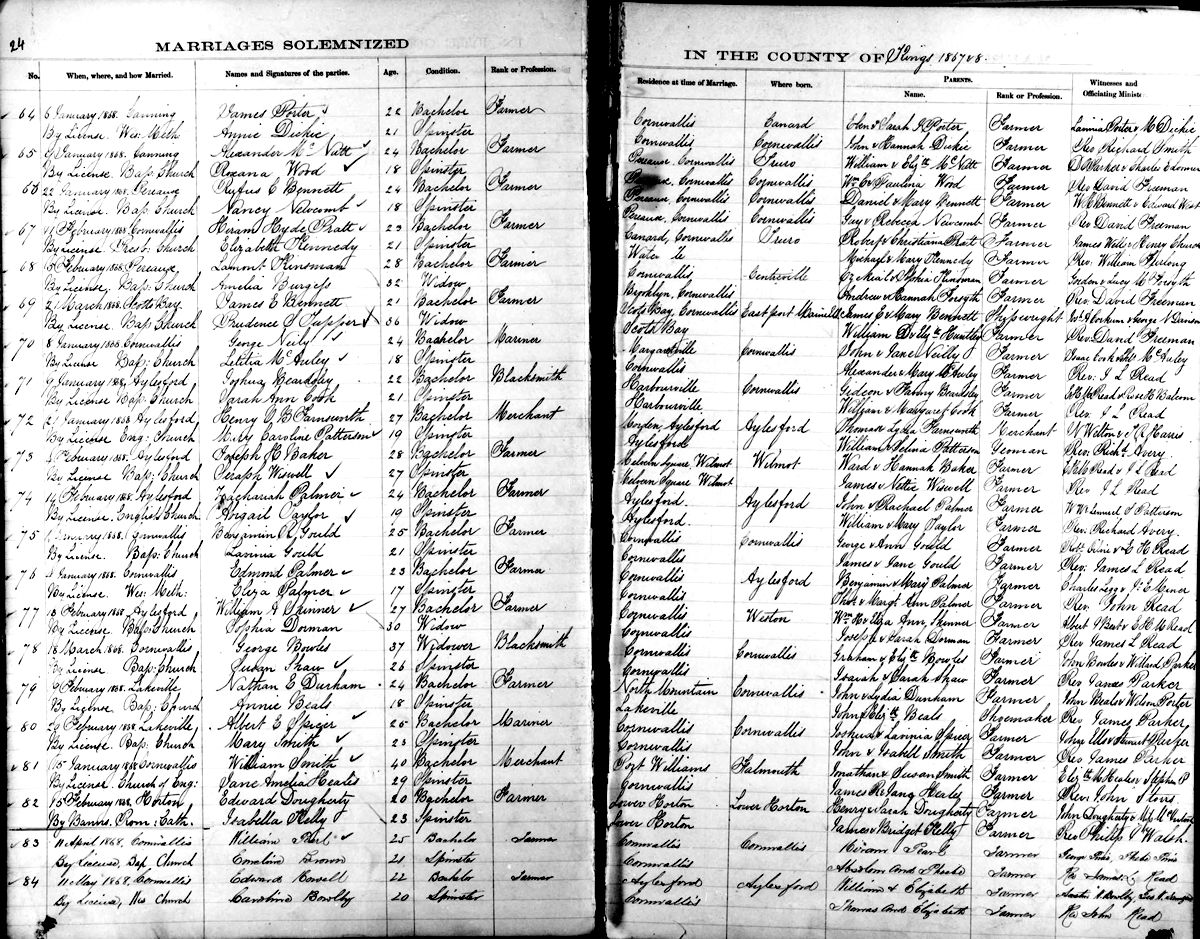 24
MARRIAGES SOLEMNIZED
No. When, where, and how Married. Names and Signatures of the parties. Age. Condition. Rank or Profession.
64 6 January 1868. Canning James Porter 22 Bachelor Farmer
By License. Wes: Meth: Annie Dickie 21 Spinster
65 9 January 1868. Canning Alexander McNutt 24 Bachelor Farmer
By License. Bap: Church Roxana Word 18 Spinster
66 22 January 1868. Pereaux Rufus C Bennett 24 Bachelor Farmer
By License. Bap: Church Nancy Newcomb 18 Spinster
67 February 1868 Cornwallis Hiram Hyde Pratt 23 Bachelor Farmer
By License Prest: Church Elizabeth Kennedy 21 Spinster
68 5 February 1868. Pereaux, Lamont Kinsman 28 Bachelor Farmer
By License, Bap: Church Amelia Burgess 32 Widow
69 2 March 1868. Scotts Bay James E Bennett 21 Bachelor Farmer
By License. Bap Church Prudence S Tupper 36 Widow
70 8 January 1868 Cornwallis George Neily 24 Bachelor Mariner
By License Bap: Church Letitia McAuley 18 Spinster
71 9 January 1868, Aylesford Joshua Beardsley 22 Bachelor Blacksmith
By License Bap Church Sarah Ann Cook 21 Spinster
72 January 1868 Aylesford Henry G B Farnsworth 27 Bachelor Merchant
By License Eng: Church Mary Caroline Patterson 19 Spinster
73 February 1868. Aylesford Joseph H Baker 28 Bachelor Farmer
By License Bap: Church Seraph Wiswell 27 Spinster
74 14 February 1868. Aylesford Zachariah Palmer 24 Bachelor Farmer
By License. English Church Abigail Taylor 19 Spinster
75 January 1868. Cornwallis Benjamin R. Gould 25 Bachelor Farmer
By License. Bap: Church Lavinia Gould 21 Spinster
76 January 1868. Cornwallis Edmond Palmer 23 Bachelor Farmer
By License. Wes: Meth: Eliza Palmer 17 Spinster
77 13 February 1868 Aylesford, William A Skinner 27 Bachelor Farmer
By License. Bap: Church Sophia Dorman 30 Widow
78 18 March 1868. Cornwallis George Bowles 37 Widower Blacksmith
By License Bap: Church Susan Shaw 26 Spinster
79 9 February 1868. Lakeville Nathan E Durham 24 Bachelor Farmer
By License. Bap: Church Annie Beals 18 Spinster
80 29 February 1868 Lakeville, Albert E Spicer 26 Bachelor Mariner
By License Bap: Church Mary Smith 23 Spinster
81 15 January 1868 Cornwallis William Smith 40 Bachelor Merchant
By License. Church of Eng: Jane Amelia Heales 29 Spinster
82 5 February 1868, Horton Edward Dougherty 20 Bachelor Farmer
By Banns. Rom: Cath. Isabella Kelly 23 Spinster
83 11 April 1868, Cornwallis William Pearl 25 Bachelor Farmer
By License, Bap Church Comelina Brown 21 Spinster
84 11 May 1868, Cornwallis Edward Kowell 22 Bachelor Farmer
By License, Wes Church Caroline Bowlby 20 Spinster
IN THE COUNTY OF Kings 1867 & 8
Residence at time of Marriage. Where born. PARENTS. Name. Rank or Profession. Witnesses and Officiating Minister
Cornwallis Canard Eben & Sarah J Porter Farmer Lavinia Porter & M Dickie
Cornwallis Cornwallis John & Hannah Dickie Farmer Rev Richard Smith
Pereaux, Cornwallis Truro William & Elizth McNutt Farmer D Parker & Charles Edomer
Pereaux, Cornwallis Cornwallis Wm C & Paulina Word Farmer Rev David Freeman
Pereaux, Cornwallis Cornwallis Daniel & Mary Bennett Farmer W E Bennett & Edward West
Pereaux, Cornwallis Cornwallis Guy & Rebecca Newcomb Farmer Rev David Freeman
Canard, Cornwallis Truro Robert & Christiana Pratt Farmer James Will & Henry Church
Water Michael & Mary Kennedy Farmer Rev. William Furlong
Cornwallis Centreville Farmer Gordon & Lucy M Forsyth
Brooklyn, Cornwallis Andrew & Hannah Forsyth Farmer Rev. David Freeman
Scots Bay, Cornwallis East port Maine US James E & Mary Bennett Shipwright
Scots Bay William D & Mth Huntley Farmer Rev David Freeman
Margaretville Cornwallis John & Jane Neilly Farmer Isaac Cook McAuley
Cornwallis Alexander & Mary McAuley Farmer Rev: J L Read
Harbourville Cornwallis Gideon & Phoeny Beardsley Farmer E H McRead & Rose H Balcom
Harbourville. William & Margaret Cook Farmer Rev. J L Read
Aylesford Aylesford Thomas & Lydia Farnsworth Merchant W Welton & J R Harris
Aylesford William & Selina Patterson Yeoman Rev. Richd Avery.
Melvern Square Wilmot Wilmot Ward & Hannah Baker Farmer
Melvern Square Wilmot James & Nettie Wiswell Farmer Rev J L Read
Aylesford. Aylesford John & Rachael Palmer Farmer W W & Lemuel S Patterson
Aylesford. William & Mary Taylor Farmer Rev. Richard Avery.
Cornwallis Cornwallis George & Ann Gould Farmer Robt & E H Read
Cornwallis James & Jane Gould Farmer Rev. James L Read
Cornwallis Aylesford Benjamin & Maris Palmer Farmer Charles Legg & J E Miner
Cornwallis Thos & Margt Ann Palmer Farmer Rev. John Read
Cornwallis Weston Wm H & Eliza Ann Skinner Farmer Albert S Best & E H McRead
Cornwallis Joseph & Sarah Dorman Farmer Rev James L Read
Cornwallis Cornwallis Graham & Elizth Bowles Farmer John Bowles & Willard Parker
Cornwallis Isaiah & Sarah Shaw Farmer Rev James Parker
North Mountain Cornwallis John & Lydia Dunham Farmer John Beals & Wilson Porter
Lakeville John & Elizth Beals Shoemaker Rev James Parker,
Cornwallis Cornwallis Joshua & Lavinia Spicer Farmer John Ells & Stewart Parker
Cornwallis John & Isabell Smith Farmer Rev James Parker
Port Williams Falmouth Jonathan & Susan Smith Farmer Elizth M Heales & Stephen P
Cornwallis James R & Jane Healey Farmer Rev. John Storrs
Lower Horton Lower Horton Henry & Sarah Dougherty Farmer John Dougherty &
Lower Horton James & Bridget Kelly Farmer Rev Phillip Walsh.
Cornwallis Cornwallis Hiram Pearl Farmer
Cornwallis Abraham and Phoebe Farmer Rev James L Read
Aylesford Aylesford William & Elizabeth Farmer
Cornwallis Thomas and Elizabeth Farmer Rev John Read